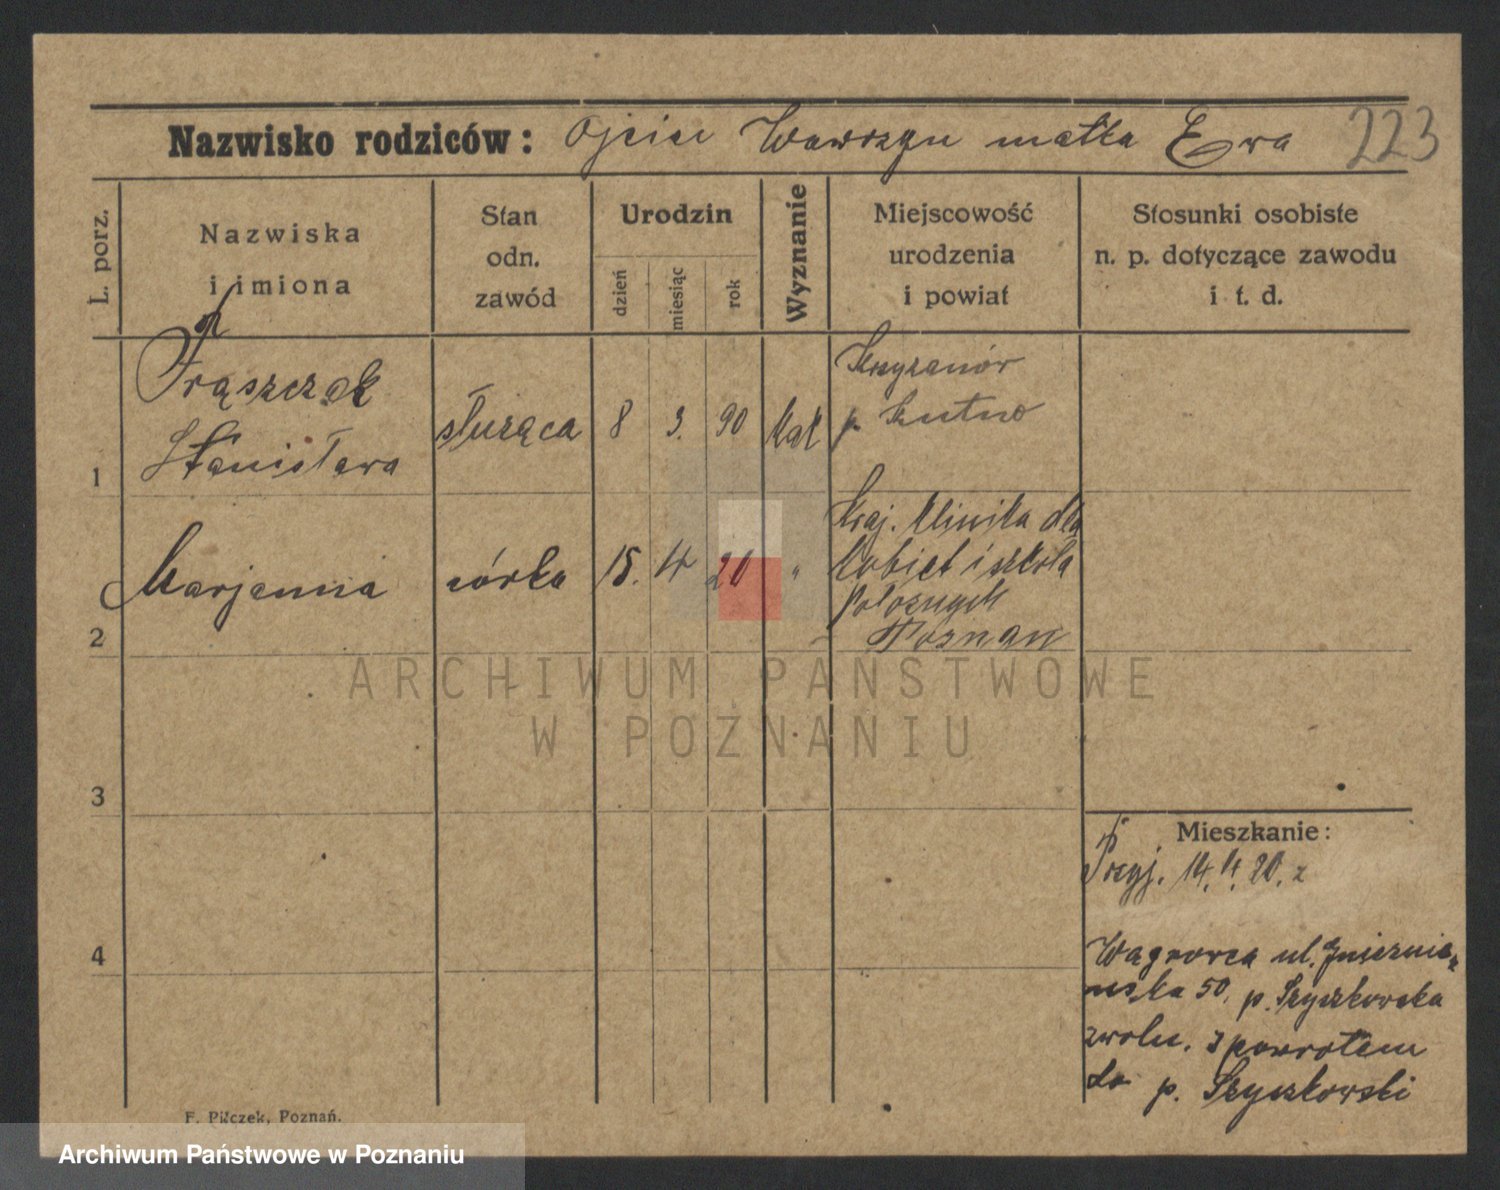 Nazwisko rodziców: Ojciec Wawrzyn matka Ewa 223
L. porz.
Nazwiska
i imiona
Stan
odn.
zawód
Urodzin
dzień
miesiąc
rok
Wyznanie
Miejscowość
urodzenia
i powiat
Stosunki osobiste
n. p. dotyczące zawodu
i t. d.
1
Frąszczak
Stanisława
służąca
8
3.
90
kat
Krzyżanów
p. Kutno
2
Marjanna
córka
15.
4
20
"
Kraj. klinika dla
kobiet i szkoła
Położnych
Poznań
3
4
Mieszkanie:
Przyj. 14.4.20. z
Wągrowca ul. Gnieźnie-
ńska 50, p. Szyszkowska
zwoln. z powrotem
do p. Szyszkowski
F. Pilczek, Poznań.
ARCHIWUM PAŃSTWOWE
W POZNANIU
Archiwum Państwowe w Poznaniu